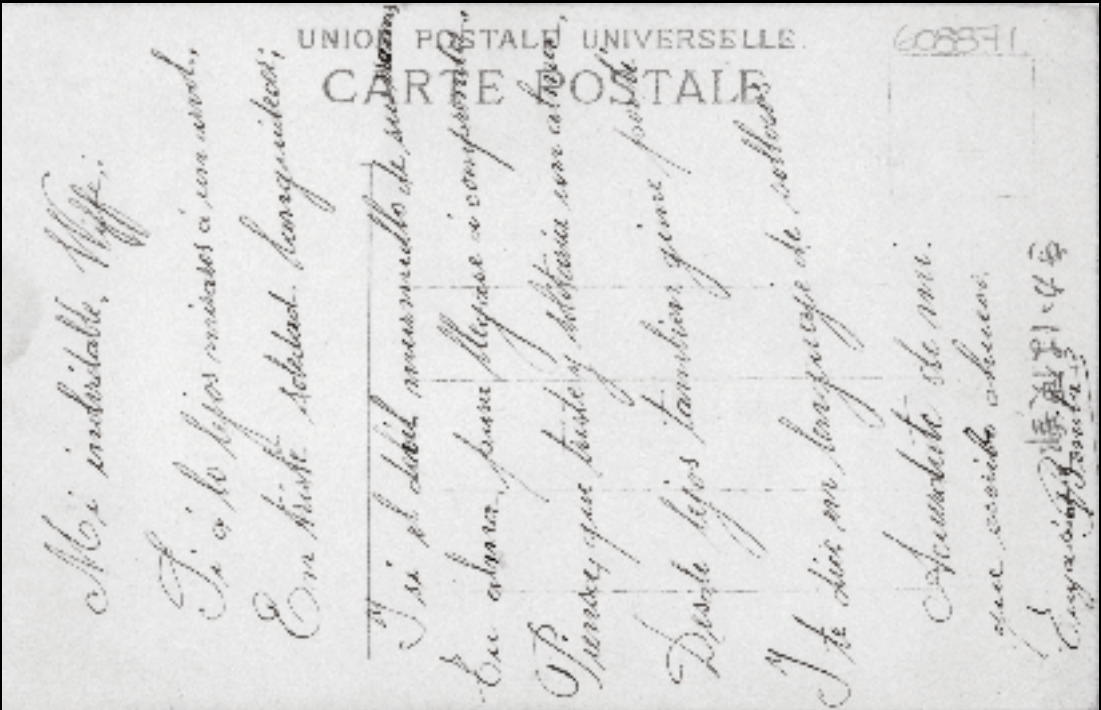 UNION POSTALE UNIVERSELLE.
CARTE POSTALE
608871
Mi inolvidable, Wiffe:
Si a lo lejos mirases a un arbol,
En triste soledad languidecer,
Y si el débil murmullo de sus ramas
Tu alma, pura llegase a comprender,
Piensa, que triste y solitaria un alma,
Desde lejos tambien gime por ti
Y te dice en lenguage de sollosos
Acuerdate de mi.
Eugenio